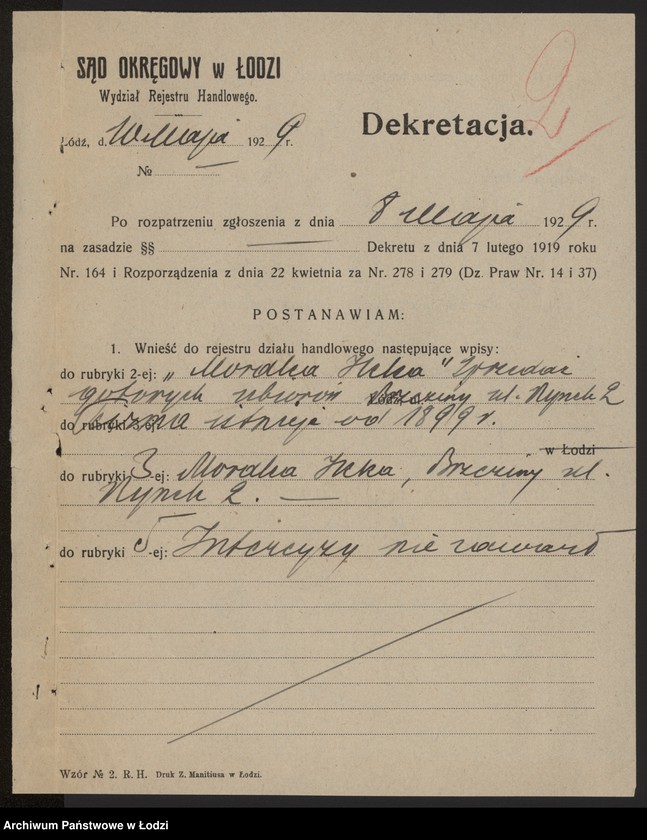 SĄD OKRĘGOWY w ŁODZI
Wydział Rejestru Handlowego.
2
Łódź, d. 10 Maja 1929 r.
Dekretacja.
№ —
Po rozpatrzeniu zgłoszenia z dnia 8 Maja 1929 r.
na zasadzie §§ — Dekretu z dnia 7 lutego 1919 roku
Nr. 164 i Rozporządzenia z dnia 22 kwietnia za Nr. 278 i 279 (Dz. Praw Nr. 14 i 37)
POSTANAWIAM:
1. Wnieść do rejestru działu handlowego następujące wpisy:
do rubryki 2-ej: „Mordka Icka" Sprzedaż
gotowych ubiorów Brzeziny ul. Rynek 2
do rubryki Firma istnieje od 1899 r.
w Łodzi
do rubryki 3-ej: Mordka Icka, Brzeziny ul.
Rynek 2. —
do rubryki 5-ej: Intercyzy nie zawarł
Wzór № 2. R. H. Druk Z. Manitiusa w Łodzi.
Archiwum Państwowe w Łodzi